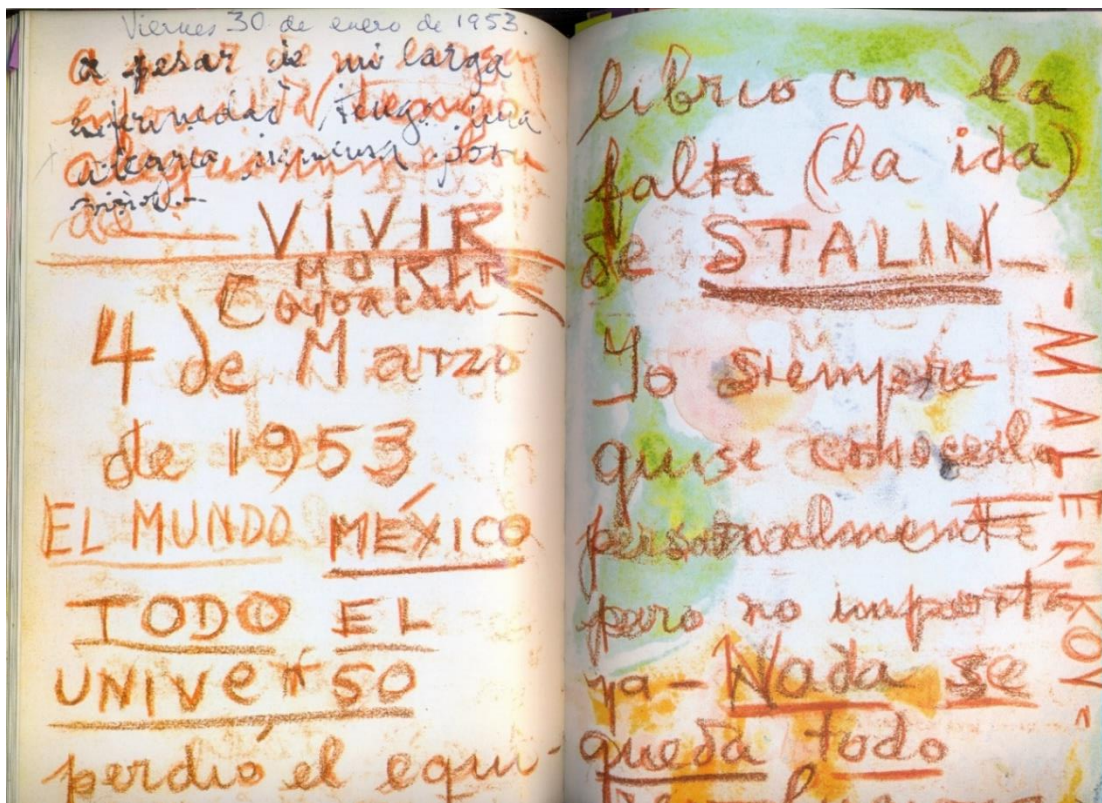 Viernes 30 de enero de 1953.
a pesar de mi larga
enfermedad, tengo una
alegría inmensa por
VIVIR
MORIR
Coyoacan
4 de Marzo
de 1953
EL MUNDO MÉXICO
TODO EL
UNIVERSO
perdió el equi-
librio con la
falta (la ida)
de STALIN -
Yo siempre
quise conocerlo
personalmente
pero no importa
ya - Nada se
queda todo
- MALENKOV -